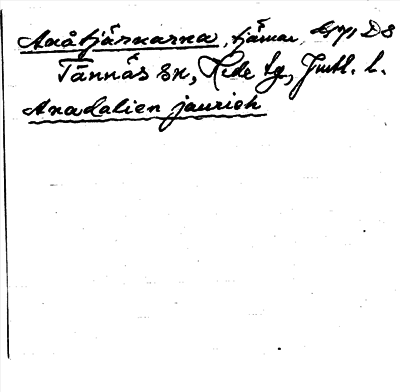 Anåtjärnarna, tjärnar, 171 D8
Tännäs sn, Hede tg, Jmtl. l.
Anadalien jaurieh